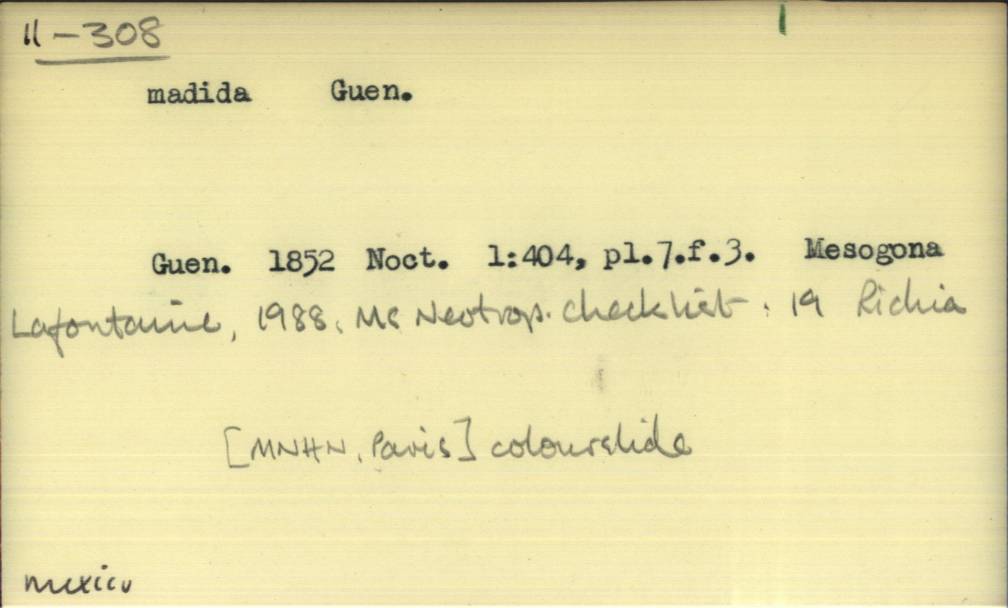 11-308
madida Guen.
Guen. 1852 Noct. 1:404, pl.7.f.3. Mesogona
Lafontaine, 1988. MS Neotrop. checklist: 19 Richia
[MNHN, Paris] colourslide
Mexico